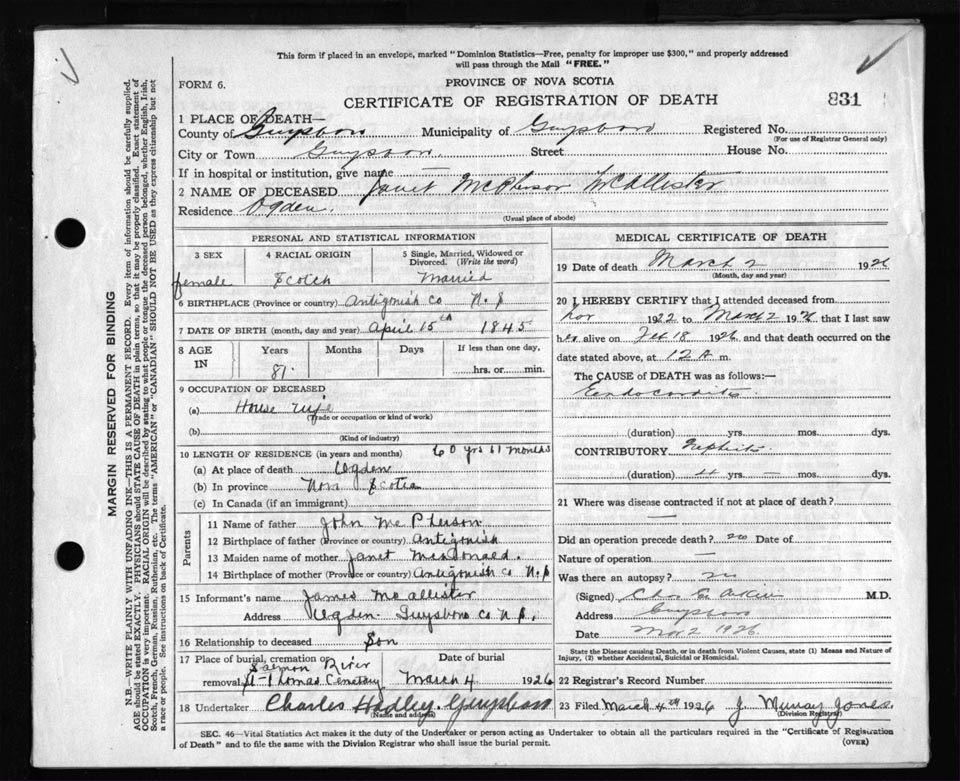 This form if placed in an envelope, marked "Dominion Statistics—Free, penalty for improper use $300," and properly addressed
will pass through the Mail "FREE."
FORM 6.
PROVINCE OF NOVA SCOTIA
CERTIFICATE OF REGISTRATION OF DEATH
831
1 PLACE OF DEATH—
County of Guysboro Municipality of Guysboro Registered No.
(For use of Registrar General only)
City or Town Guysboro Street House No.
If in hospital or institution, give name —
2 NAME OF DECEASED Janet McPherson McAllister
Residence Ogden.
(Usual place of abode)
PERSONAL AND STATISTICAL INFORMATION
3 SEX 4 RACIAL ORIGIN 5 Single, Married, Widowed or
Divorced. (Write the word)
female Scotch Married
6 BIRTHPLACE (Province or country) Antigonish Co N.S
7 DATE OF BIRTH (month, day and year) April 15th 1845
8 AGE IN Years Months Days If less than one day,
81 hrs. or min.
9 OCCUPATION OF DECEASED
(a) House wife
(Trade or occupation or kind of work)
(b)
(Kind of industry)
10 LENGTH OF RESIDENCE (in years and months) 60 yrs 11 months
(a) At place of death Ogden
(b) In province Nova Scotia
(c) In Canada (if an immigrant)
Parents
11 Name of father John McPherson
12 Birthplace of father (Province or country) Antigonish
13 Maiden name of mother Janet McDonald.
14 Birthplace of mother (Province or country) Antigonish Co N.S
15 Informant's name James McAllister
Address Ogden Guysboro Co N.S.
16 Relationship to deceased Son
17 Place of burial, cremation or Salmon River Date of burial
removal St Thomas Cemetery March 4 1926
18 Undertaker Charles Hadley. Guysboro
(Name and address)
MEDICAL CERTIFICATE OF DEATH
19 Date of death March 2 1926
(Month, day and year)
20 I HEREBY CERTIFY that I attended deceased from
Nov 1922 to March 2 1926 that I last saw
her alive on Feb 18 1926 and that death occurred on the
date stated above, at 12 A m.
The CAUSE of DEATH was as follows:—
Endocarditis
(duration) yrs. mos. dys.
CONTRIBUTORY Nephritis
(duration) 4 yrs. — mos. dys.
21 Where was disease contracted if not at place of death?
—
Did an operation precede death? no Date of
Nature of operation —
Was there an autopsy? no
(Signed) Chas E. M.D.
Address Guysboro
Date Mar 2 1926.
State the Disease causing Death, or in death from Violent Causes, state (1) Means and Nature of
Injury, (2) whether Accidental, Suicidal or Homicidal.
22 Registrar's Record Number
23 Filed March 4th 1926 J. Murray Jones
(Division Registrar)
SEC. 46—Vital Statistics Act makes it the duty of the Undertaker or person acting as Undertaker to obtain all the particulars required in the "Certificate of Registration
of Death" and to file the same with the Division Registrar who shall issue the burial permit.
(OVER)
MARGIN RESERVED FOR BINDING
N.B.—WRITE PLAINLY WITH UNFADING INK—THIS IS A PERMANENT RECORD. Every item of information should be carefully supplied.
AGE should be stated EXACTLY. PHYSICIANS should STATE CAUSE OF DEATH in plain terms, so that it may be properly classified. Exact statement of
OCCUPATION is very important. RACIAL ORIGIN will be described by stating to what people or tongue the deceased person belonged, whether English, Irish,
Scotch, French, German, Russian, Ruthenian, etc. The terms "AMERICAN" or "CANADIAN" SHOULD NOT BE USED as they express citizenship but not
a race or people. See instructions on back of Certificate.